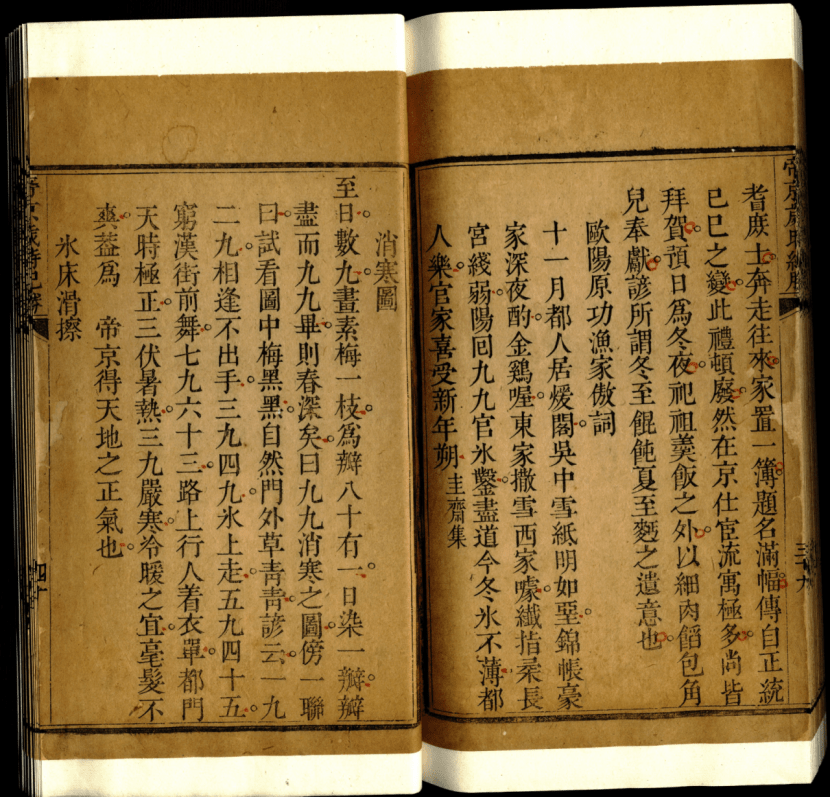 耆庶士奔走往來家置一簿題名滿幅傳自正統
己巳之變此禮頓廢然在京仕宦流寓極多尚皆
拜賀預日為冬夜祀祖羹飯之外以細肉餡包角
兒奉獻諺所謂冬至餛飩夏至麪之遺意也
歐陽原功漁家傲詞
十一月都人居煖閣吳中雪紙明如堊錦帳豪
家深夜酌金鷄喔東家撒雪西家噱纖指柔長
宮綫弱陽回九九官氷鑿盡道今冬氷不薄都
人樂官家喜受新年朔 圭齋集
三十九
消寒圖
至日數九畫素梅一枝為瓣八十有一日染一瓣瓣
盡而九九畢則春深矣曰九九消寒之圖傍一聯
曰試看圖中梅黑黑自然門外草青青諺云一九
二九相逢不出手三九四九氷上走五九四十五
窮漢街前舞七九六十三路上行人着衣單都門
天時極正三伏暑熱三九嚴寒冷暖之宜毫髮不
爽葢為 帝京得天地之正氣也
氷床滑擦
四十